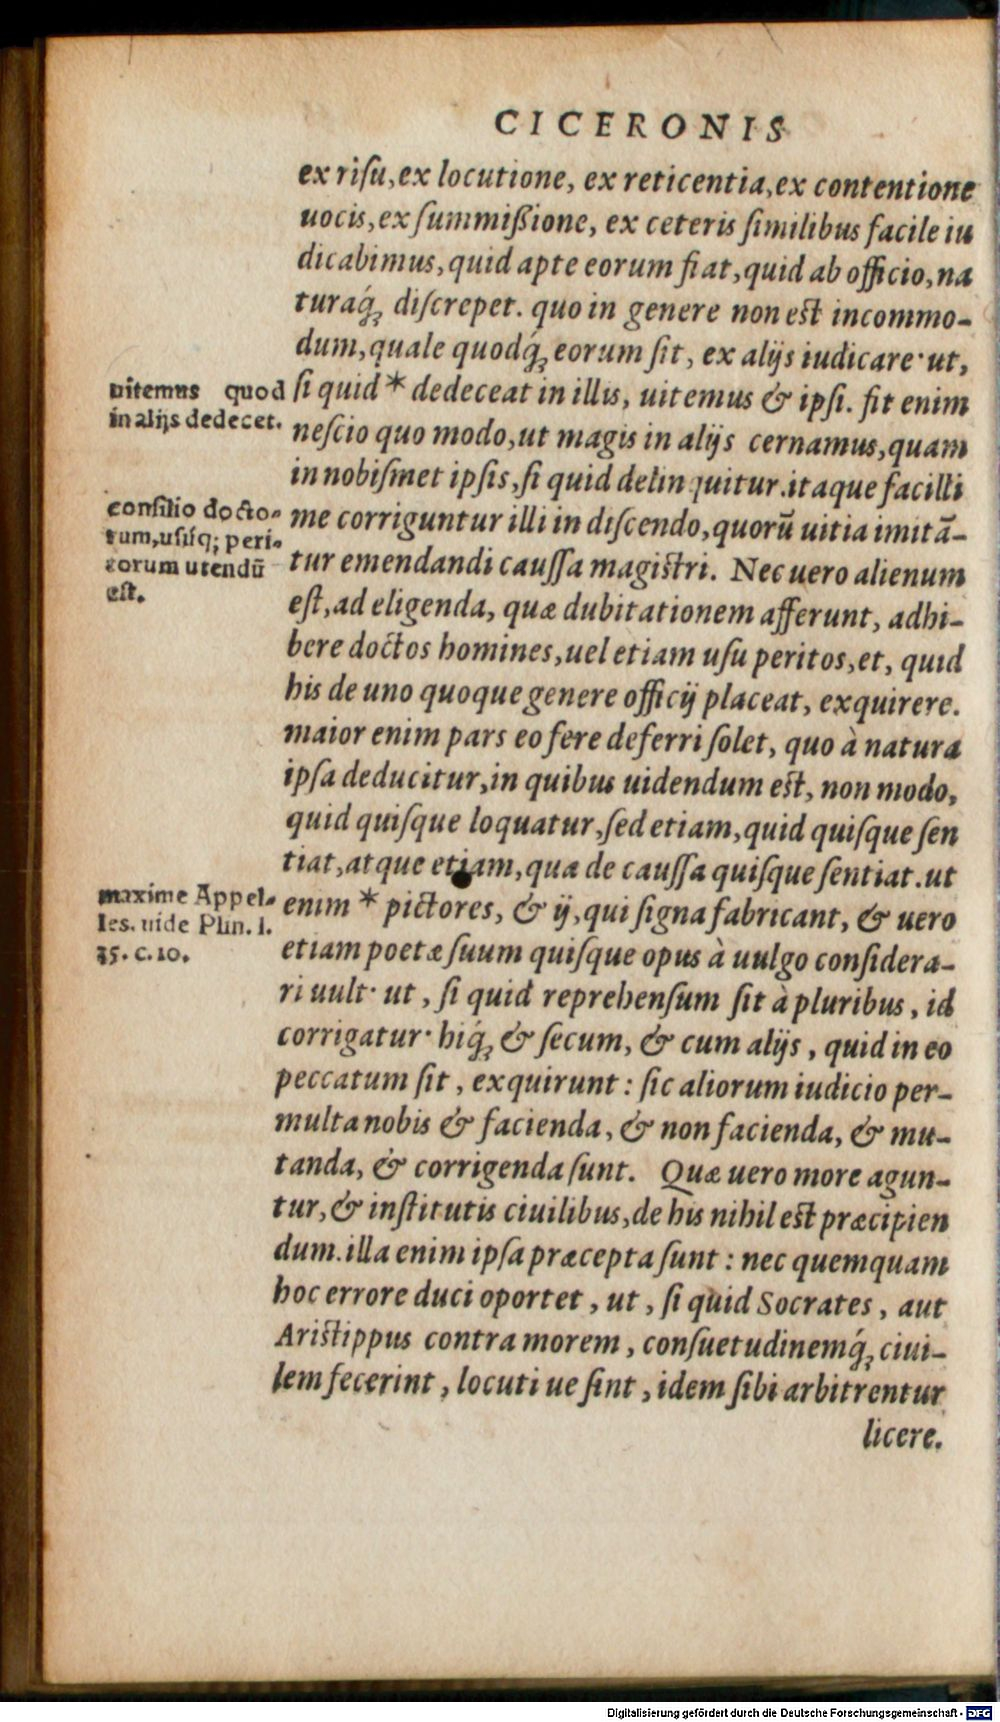 CICERONIS
ex risu, ex locutione, ex reticentia, ex contentione
uocis, ex summißione, ex ceteris similibus facile iu
dicabimus, quid apte eorum fiat, quid ab officio, na
turaq́; discrepet. quo in genere non est incommo-
dum, quale quodq́; eorum sit, ex alijs iudicare· ut,
si quid * dedeceat in illis, uitemus & ipsi. fit enim
nescio quo modo, ut magis in alijs cernamus, quam
in nobismet ipsis, si quid delinquitur. itaque facilli
me corriguntur illi in discendo, quorū uitia imitā-
tur emendandi caussa magistri. Nec uero alienum
est, ad eligenda, quæ dubitationem afferunt, adhi-
bere doctos homines, uel etiam usu peritos, et, quid
his de uno quoque genere officij placeat, exquirere.
maior enim pars eo fere deferri solet, quo à natura
ipsa deducitur, in quibus uidendum est, non modo,
quid quisque loquatur, sed etiam, quid quisque sen
tiat, atque etiam, qua de caussa quisque sentiat. ut
enim * pictores, & ij, qui signa fabricant, & uero
etiam poetæ suum quisque opus à uulgo considera-
ri uult· ut, si quid reprehensum sit à pluribus, id
corrigatur· hiq́; & secum, & cum alijs, quid in eo
peccatum sit, exquirunt: sic aliorum iudicio per-
multa nobis & facienda, & non facienda, & mu-
tanda, & corrigenda sunt. Quæ uero more agun-
tur, & institutis ciuilibus, de his nihil est præcipien
dum. illa enim ipsa præcepta sunt: nec quemquam
hoc errore duci oportet, ut, si quid Socrates, aut
Aristippus contra morem, consuetudinemq́; ciui-
lem fecerint, locuti ue sint, idem sibi arbitrentur
licere.
uitemus quod
in alijs dedecet.
consilio docto-
rum, usúsq; peri-
torum utendū
est.
maxime Appel-
les. uide Plin. l.
35. c. 10.
Digitalisierung gefördert durch die Deutsche Forschungsgemeinschaft - DFG